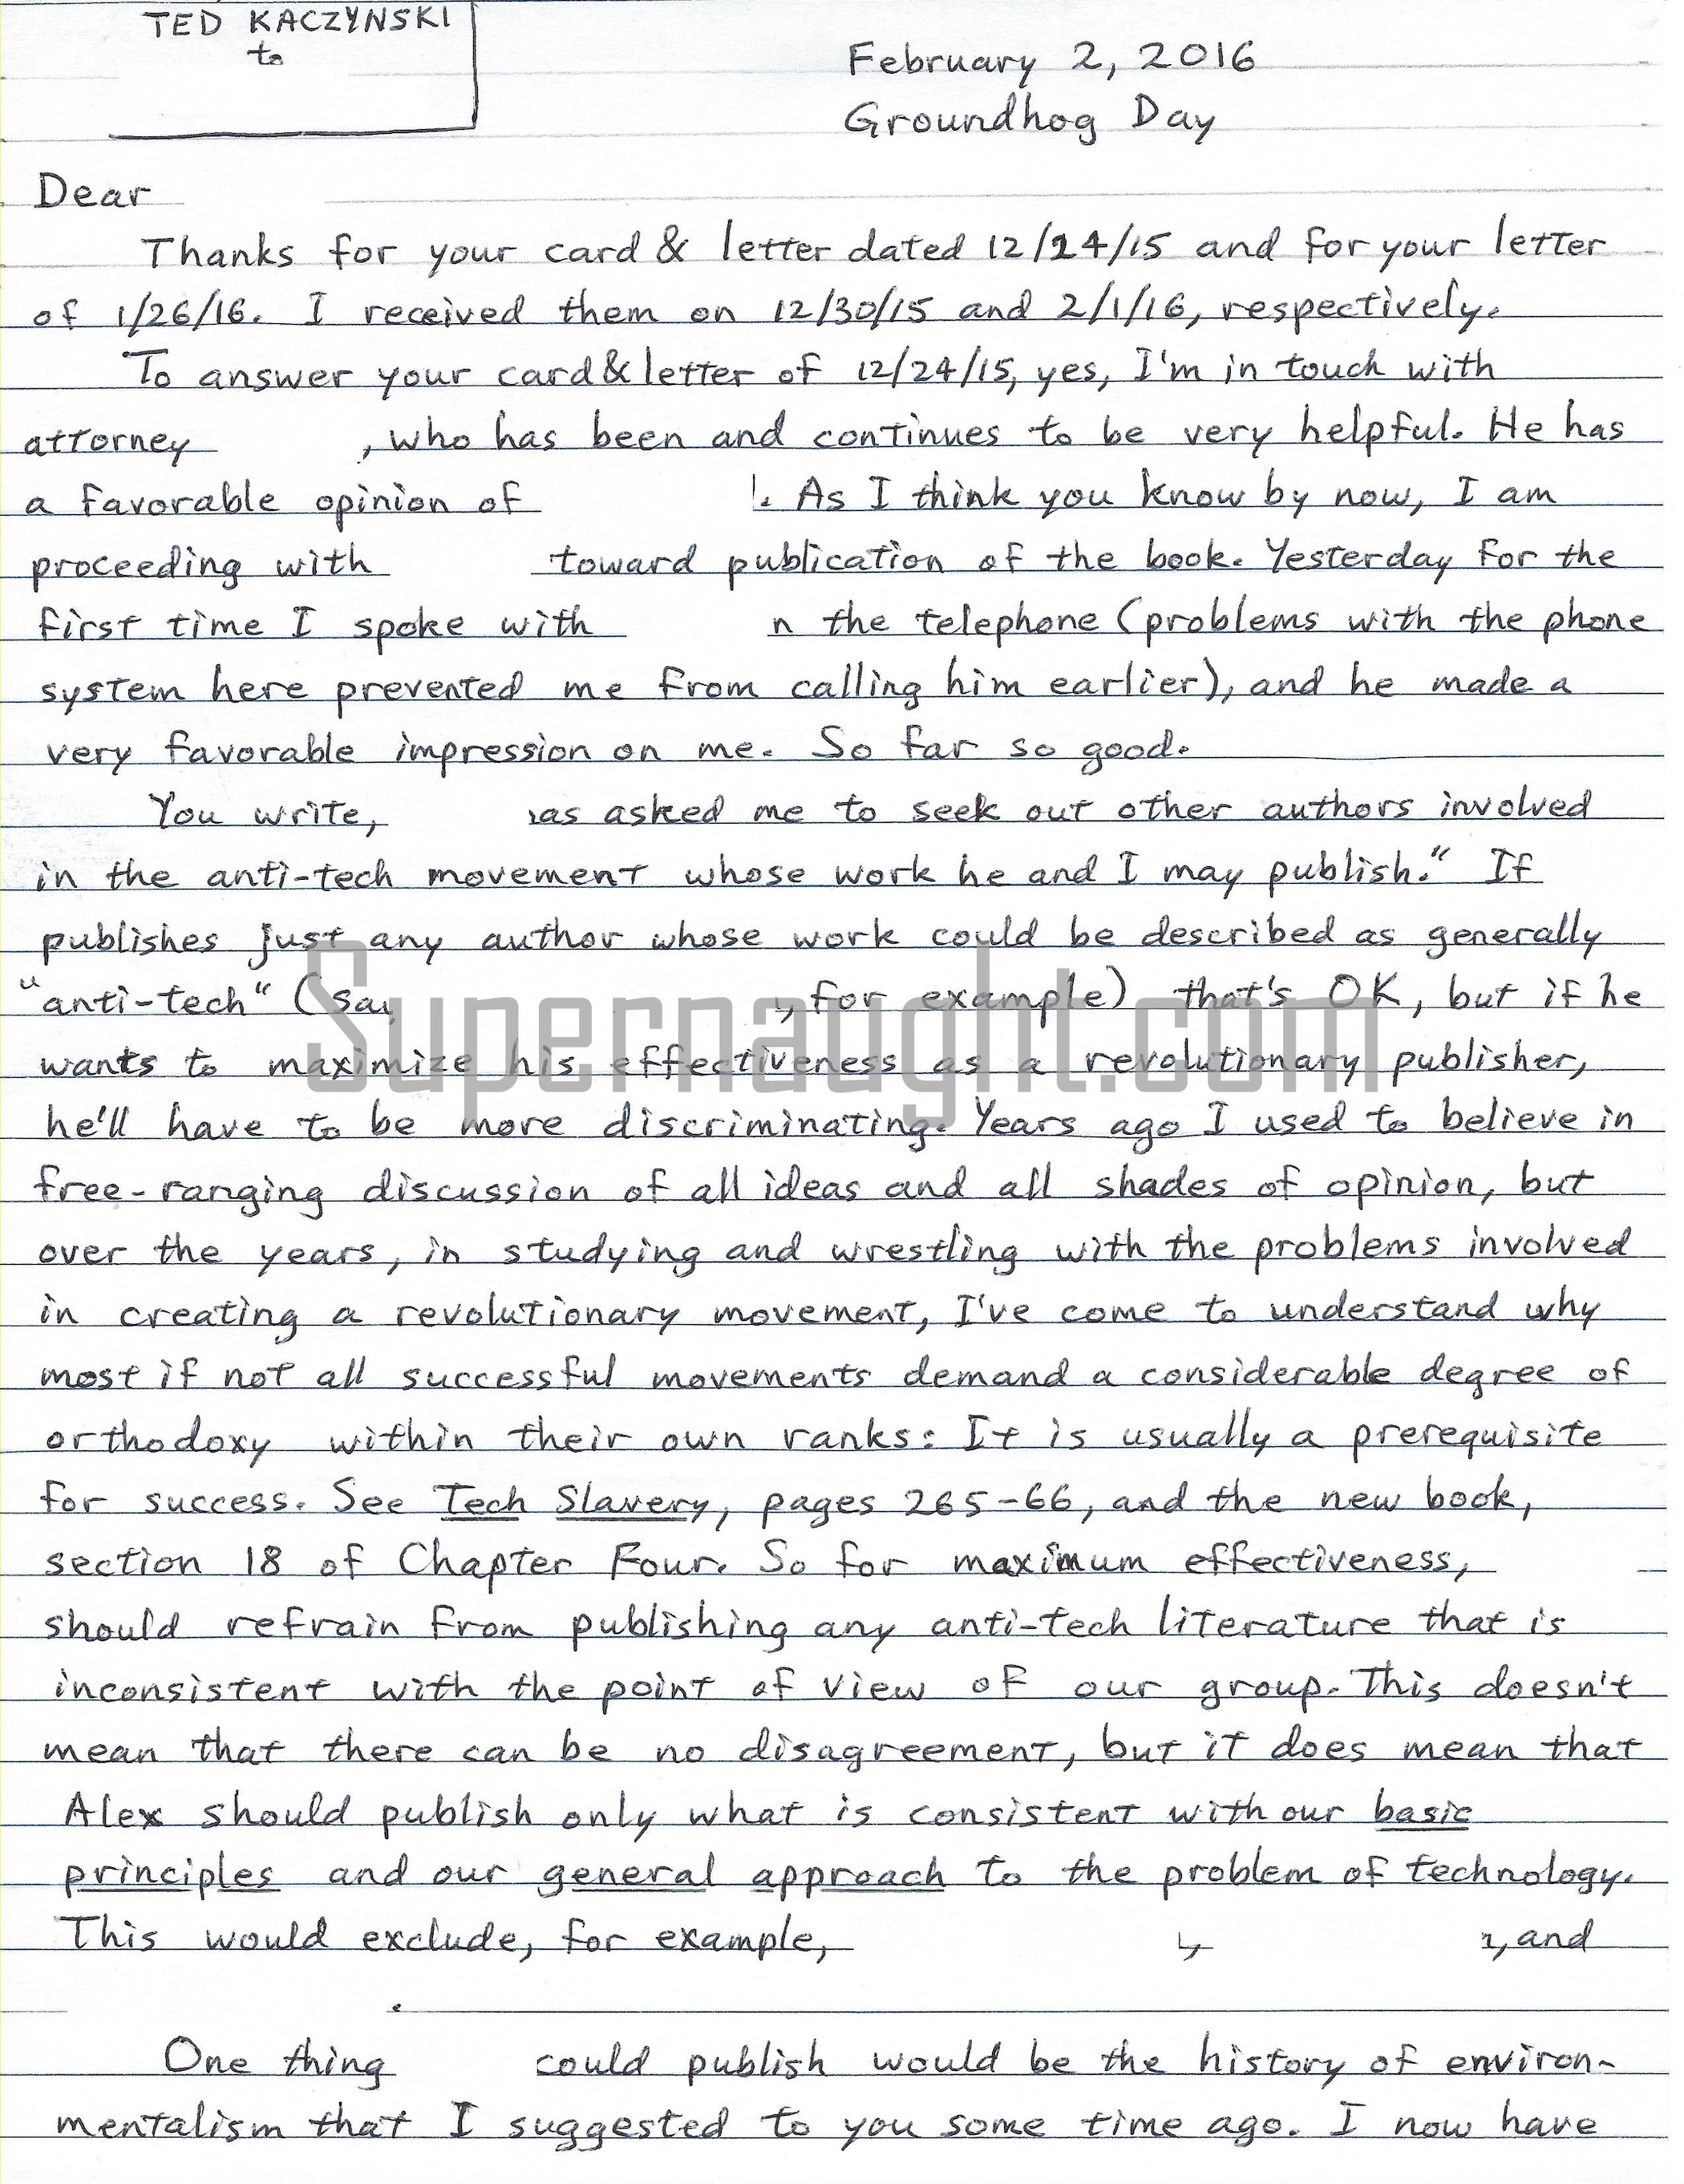 TED KACZYNSKI
to
February 2, 2016
Groundhog Day
Dear
Thanks for your card & letter dated 12/24/15 and for your letter
of 1/26/16. I received them on 12/30/15 and 2/1/16, respectively.
To answer your card & letter of 12/24/15, yes, I'm in touch with
attorney , who has been and continues to be very helpful. He has
a favorable opinion of . As I think you know by now, I am
proceeding with toward publication of the book. Yesterday for the
first time I spoke with n the telephone (problems with the phone
system here prevented me from calling him earlier), and he made a
very favorable impression on me. So far so good.
You write, as asked me to seek out other authors involved
in the anti-tech movement whose work he and I may publish." If
publishes just any author whose work could be described as generally
"anti-tech" (say , for example) that's OK, but if he
wants to maximize his effectiveness as a revolutionary publisher,
he'll have to be more discriminating. Years ago I used to believe in
free-ranging discussion of all ideas and all shades of opinion, but
over the years, in studying and wrestling with the problems involved
in creating a revolutionary movement, I've come to understand why
most if not all successful movements demand a considerable degree of
orthodoxy within their own ranks: It is usually a prerequisite
for success. See Tech Slavery, pages 265-66, and the new book,
section 18 of Chapter Four. So for maximum effectiveness,
should refrain from publishing any anti-tech literature that is
inconsistent with the point of view of our group. This doesn't
mean that there can be no disagreement, but it does mean that
Alex should publish only what is consistent with our basic
principles and our general approach to the problem of technology.
This would exclude, for example, , , and
.
One thing could publish would be the history of environ-
mentalism that I suggested to you some time ago. I now have
Supernaught.com